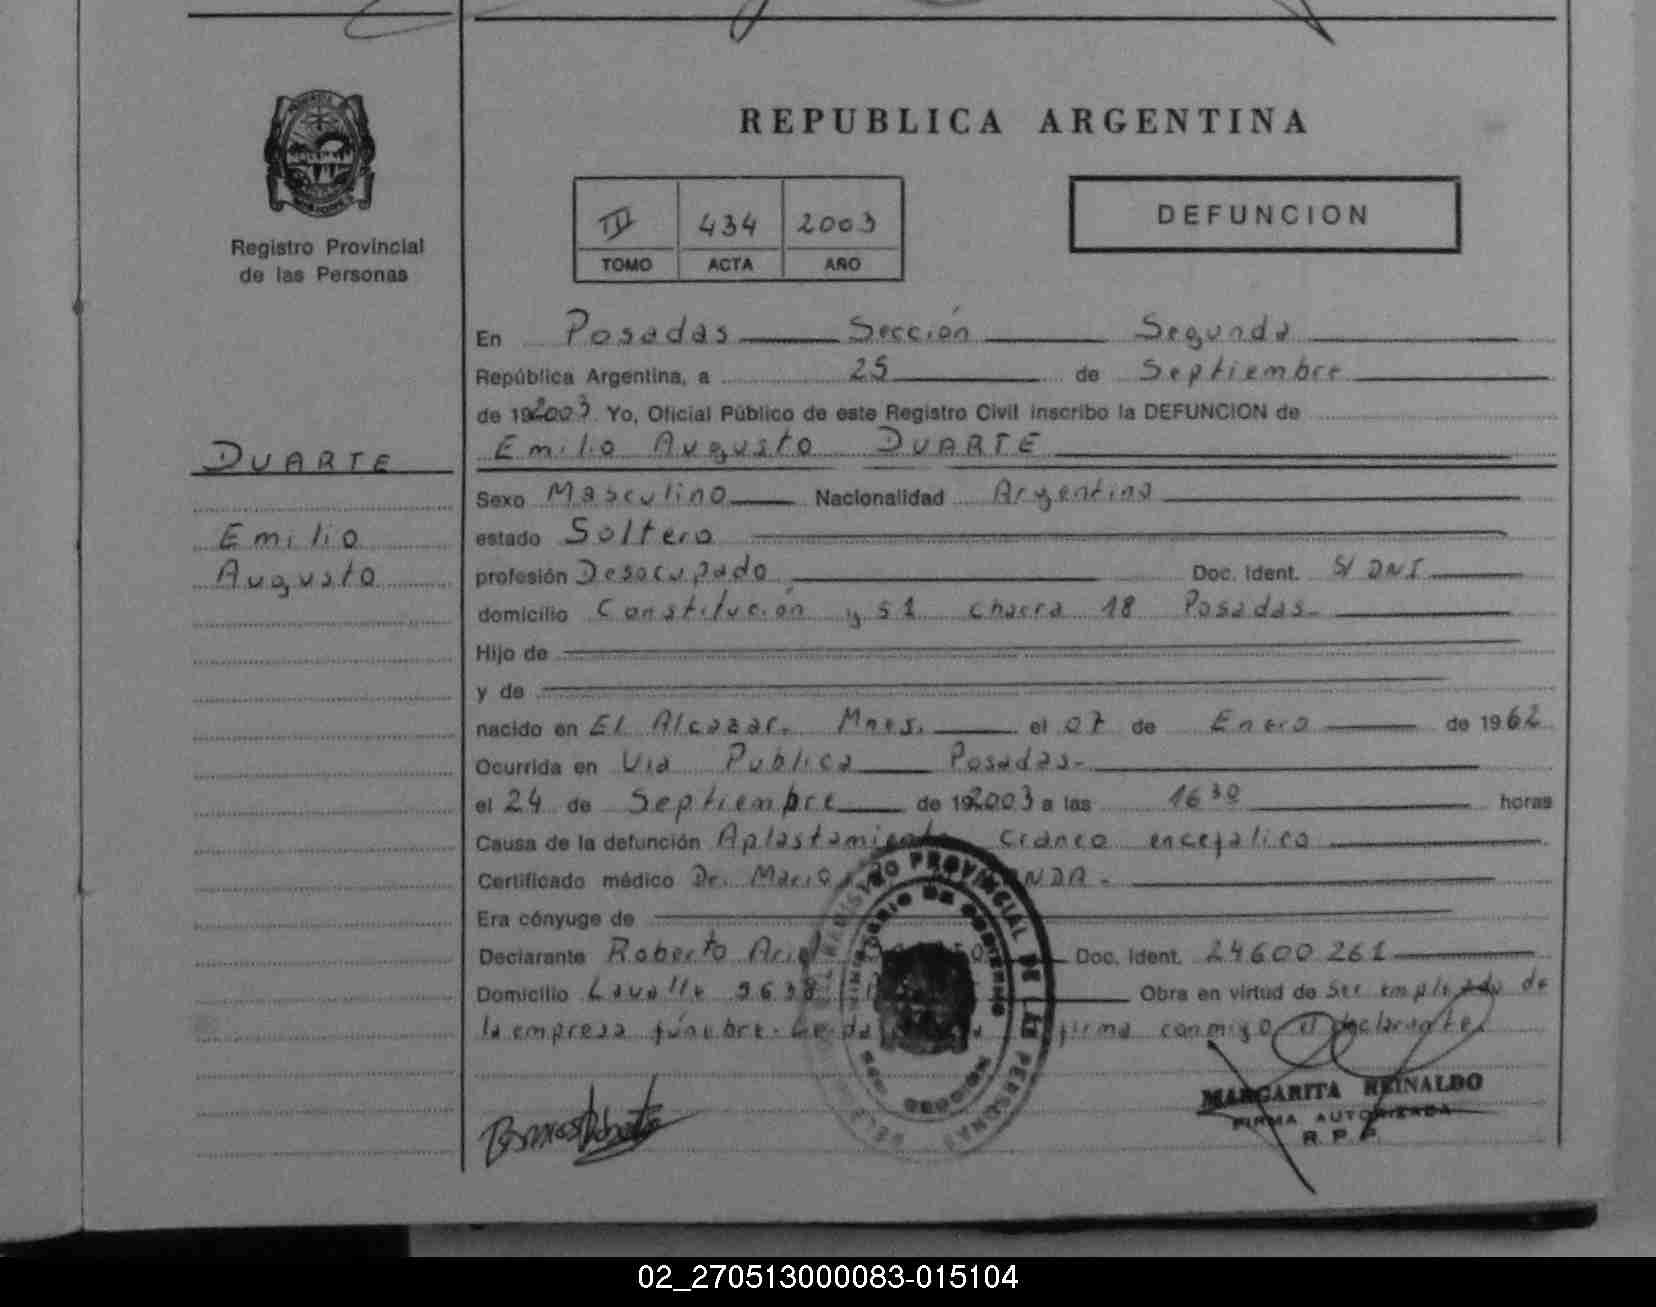 REPUBLICA ARGENTINA
Registro Provincial
de las Personas
IV 434 2003
TOMO ACTA AÑO
DEFUNCION
En Posadas Sección Segunda
República Argentina, a 25 de Septiembre
de 192003 Yo, Oficial Público de este Registro Civil inscribo la DEFUNCION de
Emilio Augusto DUARTE
DUARTE
Emilio
Augusto
Sexo Masculino Nacionalidad Argentina
estado Soltero
profesión Desocupado Doc. Ident. S/ DNI
domicilio Constitución y 51 chacra 18 Posadas-
Hijo de
y de
nacido en El Alcazar. Mnes. el 07 de Enero de 1962
Ocurrida en Via Publica Posadas-
el 24 de Septiembre de 192003 a las 16 30 horas
Causa de la defunción Aplastamiento craneo encefalico
Certificado médico Dr. Mario
Era cónyuge de
Declarante Roberto Ariel Doc. Ident. 24600261
Domicilio Lavalle 5638 Obra en virtud de ser empleado de
la empresa fúnebre. Leida firma conmigo el declarante.
REGISTRO PROVINCIAL DE LAS PERSONAS
MINISTERIO DE GOBIERNO
MARGARITA REINALDO
FIRMA AUTORIZADA
R. P. P.
02_270513000083-015104